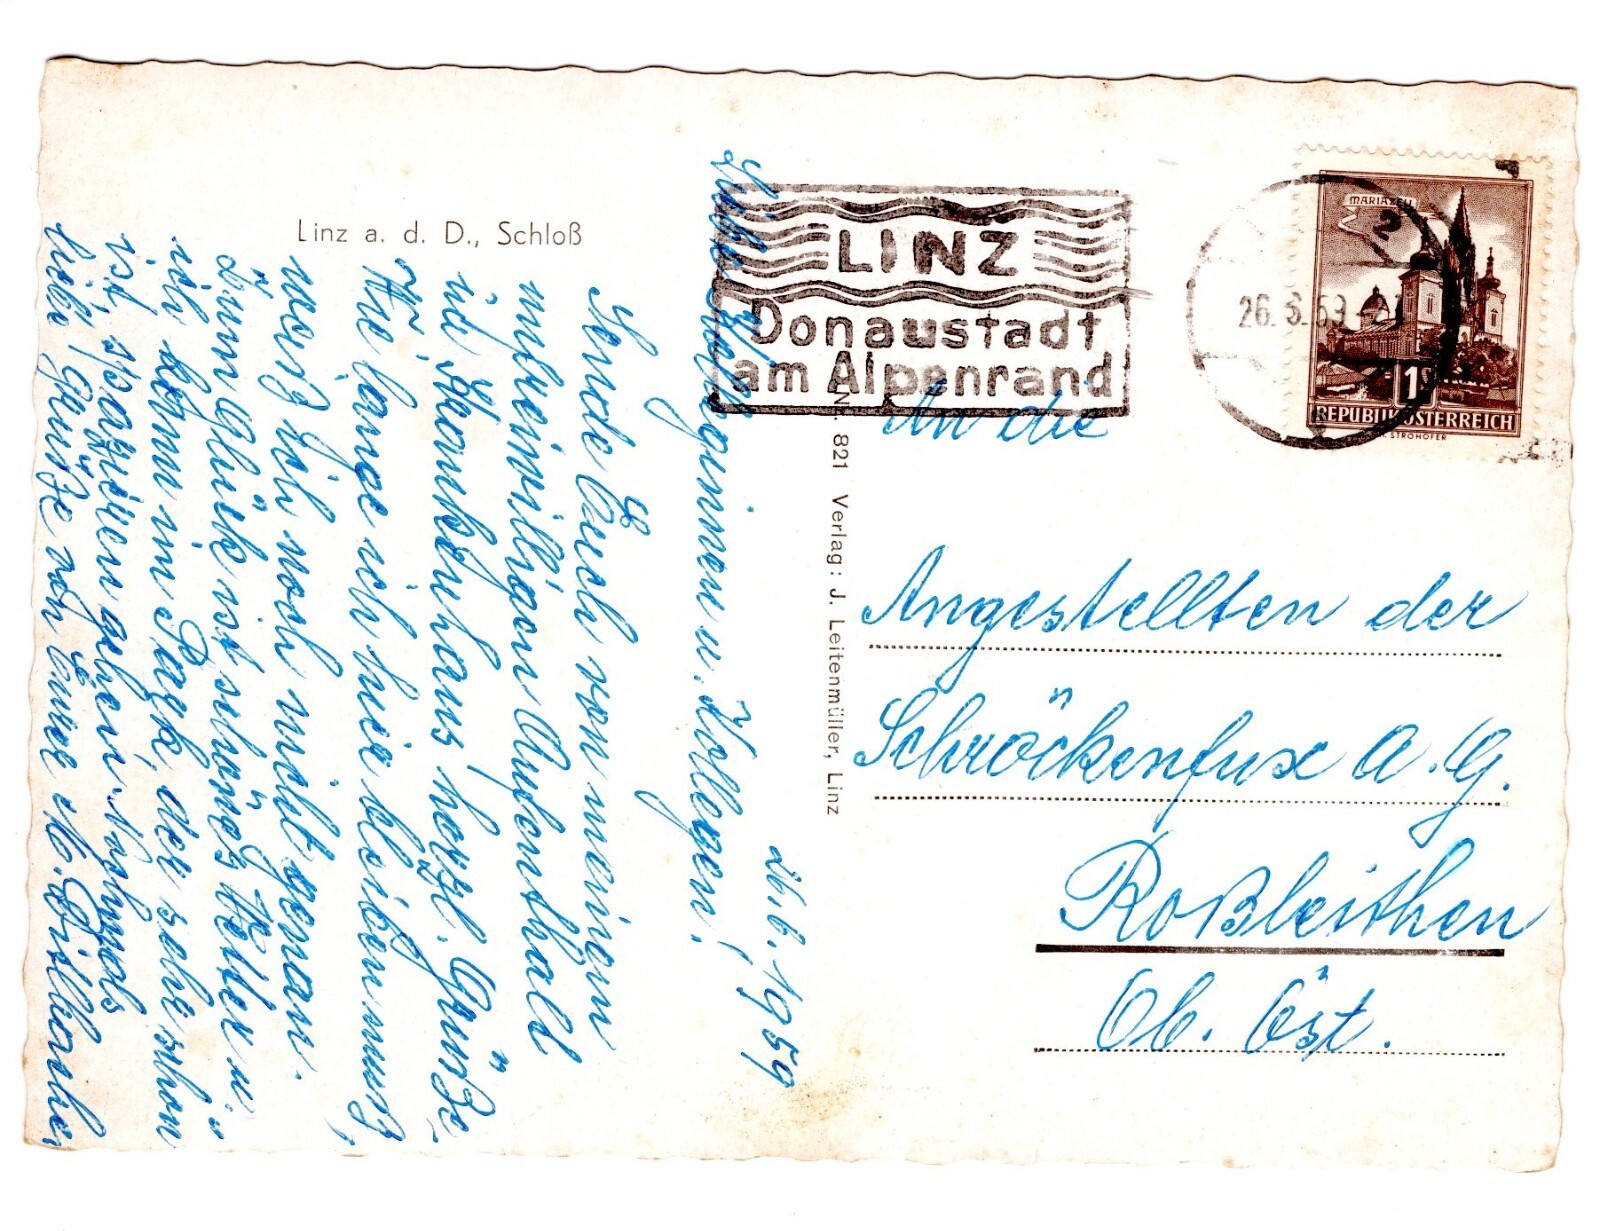 Linz a. d. D., Schloß
26.6.1959
Liebe Kolleginnen u. Kollegen!
Sende Euch von meinem
unfreiwilligen Aufenthald
im Krankenhaus herzl. Grüße,
Wie lange ich hier bleiben muß,
weiß ich noch nicht genau.
Zum Glück ist schönes Wetter u.
ich kann im Park, der sehr schön
ist spazieren gehen. Nochmals
liebe Grüße von Eurer M.
Nr. 821 Verlag: J. Leitenmüller, Linz
LINZ
Donaustadt
am Alpenrand
26. 6. 59
2
MARIAZELL
1
REPUBLIK ÖSTERREICH
STROHOFER
An die
Angestellten der
Schröckenfux A. G.
Roßleithen
Ob. Öst.